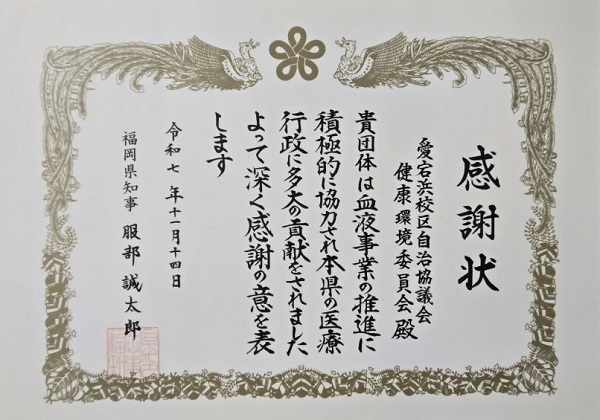 感謝状
愛宕浜校区自治協議会
健康環境委員会殿
貴団体は血液事業の推進に
積極的に協力され本県の医療
行政に多大の貢献をされました
よって深く感謝の意を表
します
令和七年十一月十四日
福岡県知事 服部誠太郎